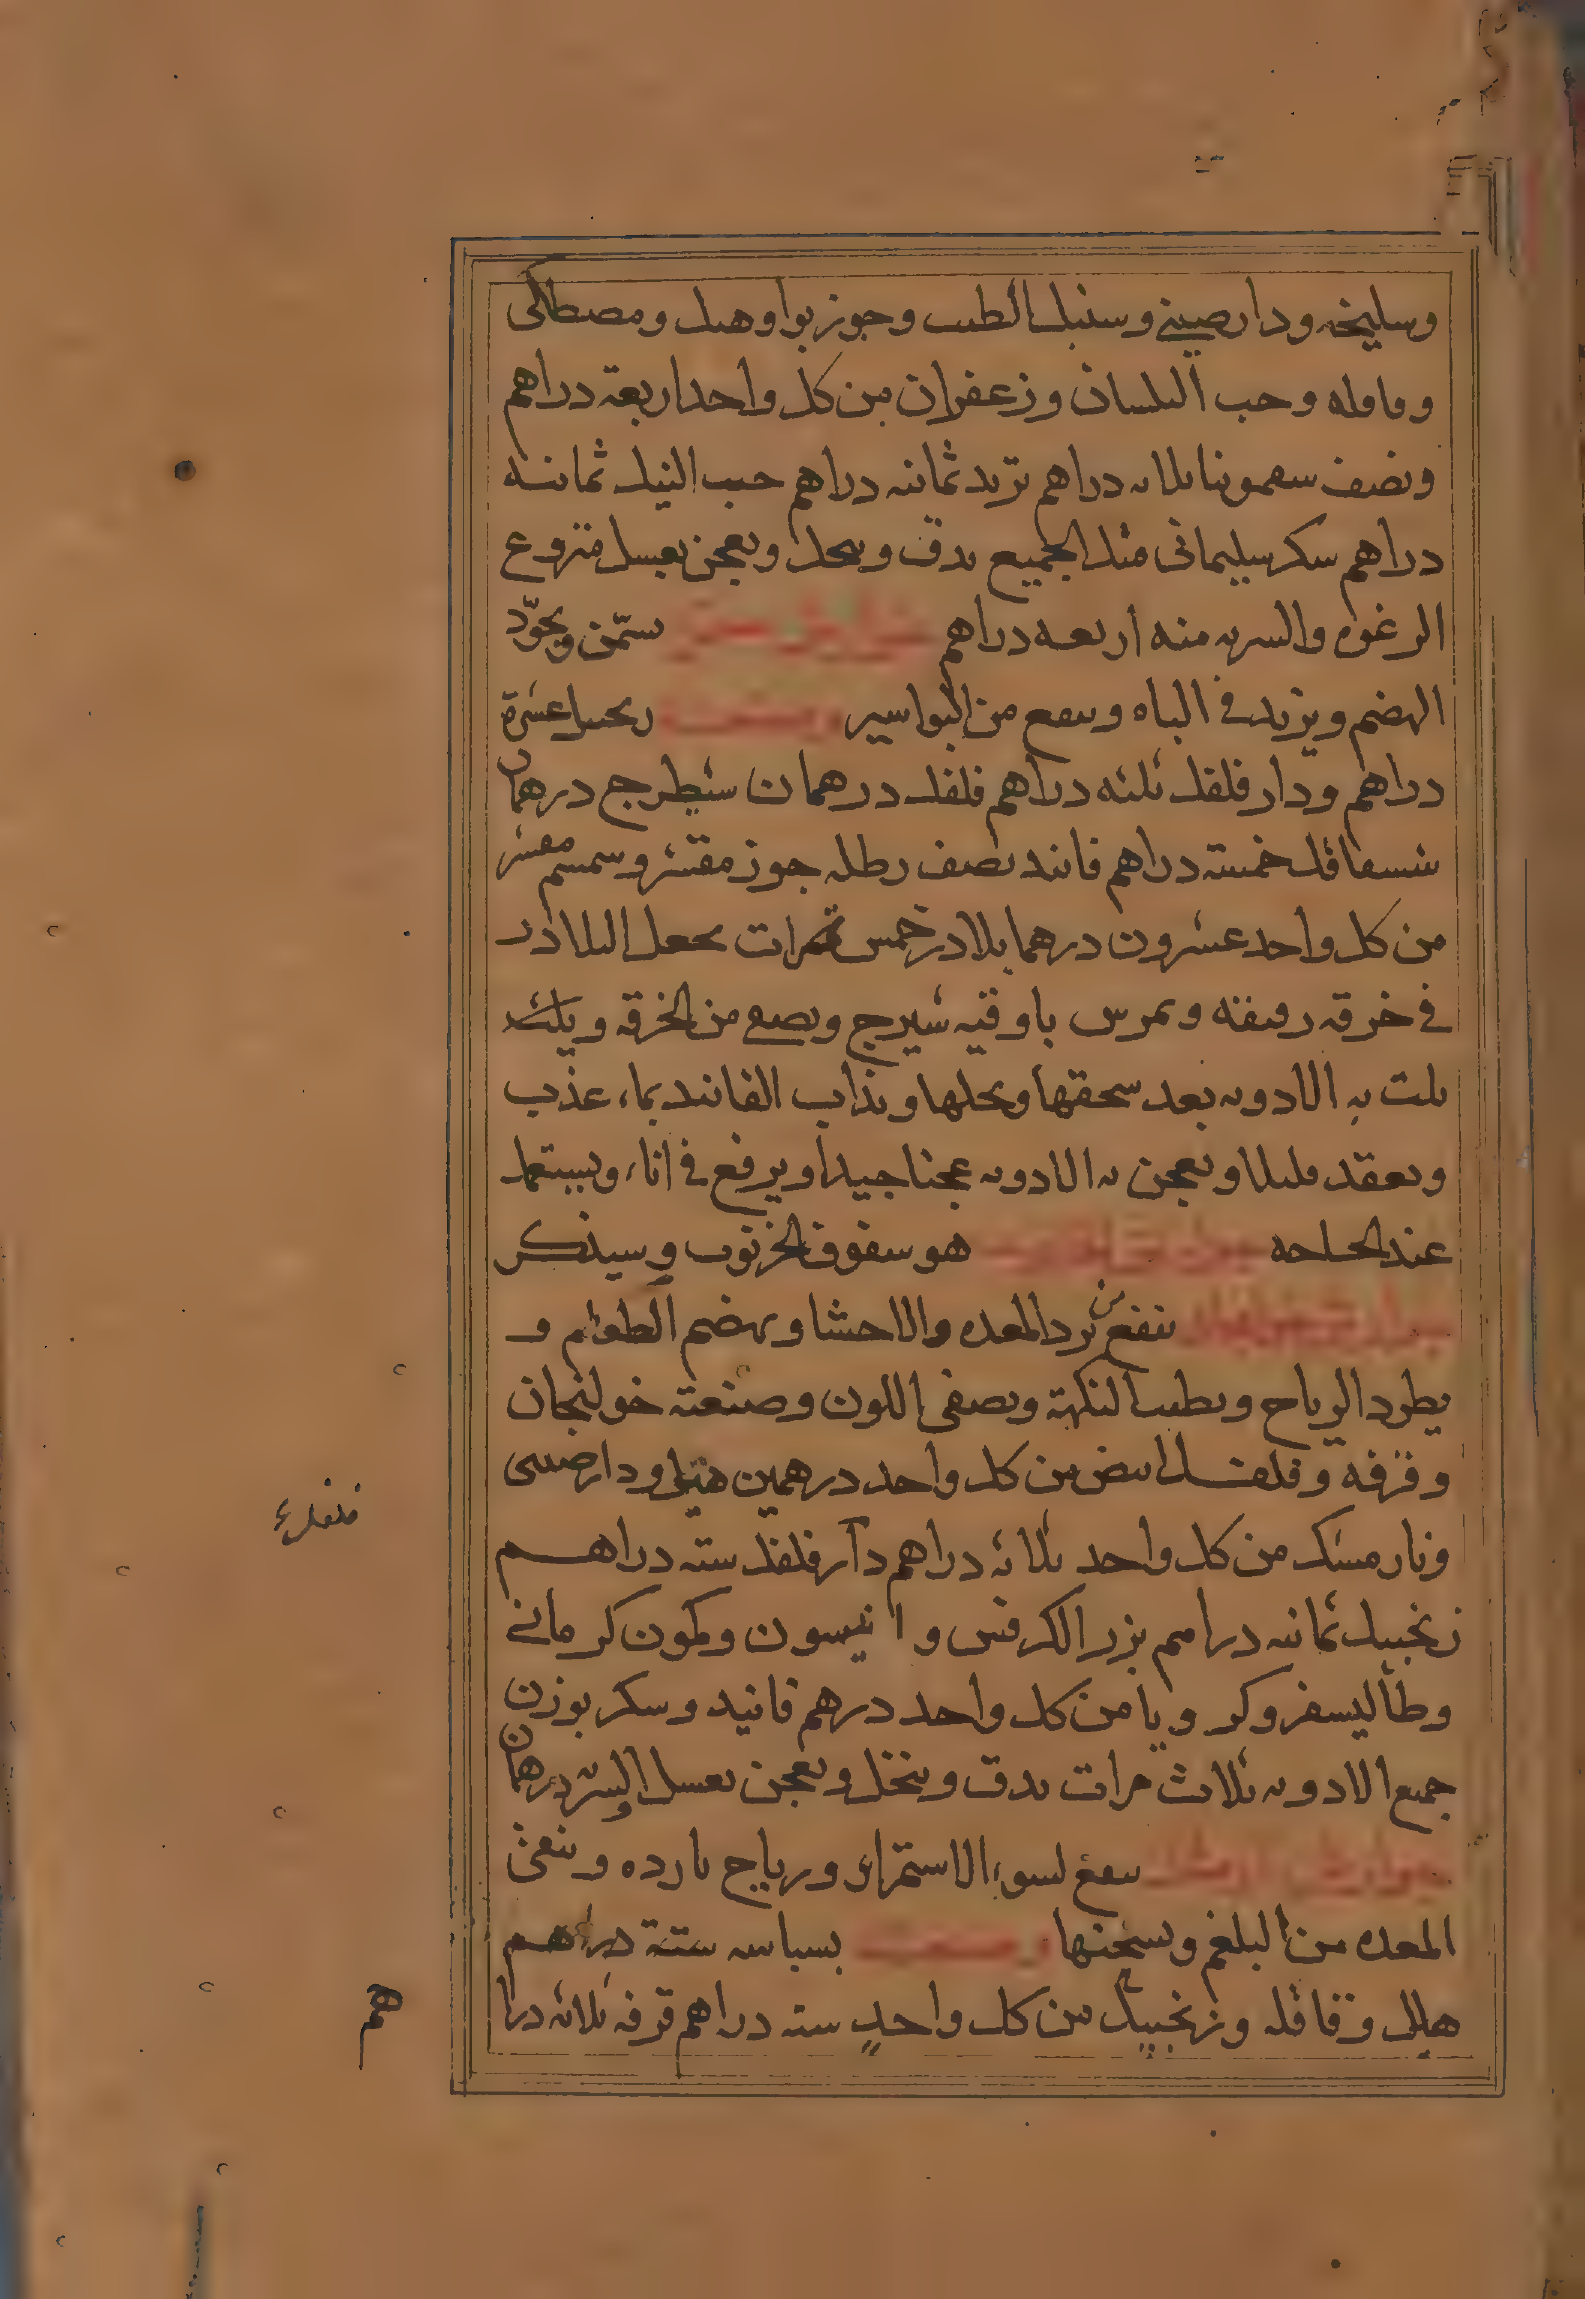 وسليخه ودارصيني وسنبل الطيب وجوزبوا وهيل ومصطكى
وقاقله وحب البلسان وزعفران من كل واحد اربعة دراهم
ونصف سقمونيا ثلاثه دراهم تربد ثمانيه دراهم حب النيل ثمانيه
دراهم سكر سليماني مثل الجميع يدق وينخل ويعجن بعسل منزوع
الرغوه والشربه منه اربعه دراهم يسمّن ويجوّد
الهضم ويزيد في الباه وينفع من البواسير زنجبيل عشرة
دراهم ودار فلفل ثلثه دراهم فلفل درهمان شيطرج درهمان
شقاقل خمسة دراهم فانيد نصف رطل جوز مقشر وسمسم مقشر
من كل واحد عشرون درهما بلادر خمس تمرات يجعل البلادر
في خرقه رقيقه ويمرس باوقيه شيرج ويصفى من الخرقه
يلت به الادويه بعد سحقها ونخلها ويذاب الفانيد بماء عذب
ويعقد قليلا ويعجن به الادويه عجنا جيدا ويرفع في اناء ويستعمل
عند الحاجه هو سفوف الخرنوب وسيذكر
ينفع من برد المعده والاحشا ويهضم الطعام و
يطرد الرياح ويطيب النكهة ويصفى اللون وصنعته خولنجان
وقرفه وفلفل ابيض من كل واحد درهمين هيل ودارصيني
ونارمشك من كل واحد ثلاثه دراهم دار فلفل سته دراهم
زنجبيل ثمانيه دراهم بزر الكرفس وانيسون وكمون كرماني
وطاليسفر وكرويا من كل واحد درهم فانيد وسكر بوزن
جميع الادويه ثلاث مرات يدق وينخل ويعجن بعسل الشربه درهمان
ينفع لسوء الاستمراء ورياح بارده وينقى
المعده من البلغم ويسخنها بسباسه ستة دراهم
هيل وقاقله وزنجبيل من كل واحد سته دراهم قرفه ثلاثه درا
هم